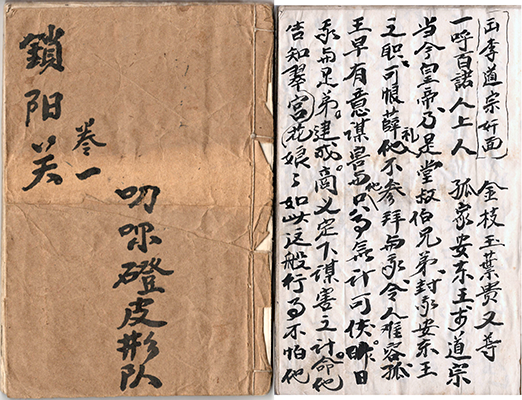 鎖阳关
卷一
皮形队
李道宗奸面 金枝玉葉贵又尊
一呼百諾人上人 孤家安东王 道宗
当今皇帝乃是堂叔伯兄弟封孤安东王
之职可恨薛礼他不参拜与孤令人难容孤
王早有意謀害与他只为无计可使昨日
孤与兄弟建成商义定下謀害之计命他
告知翠宫花娘々如此这般行为不怕他